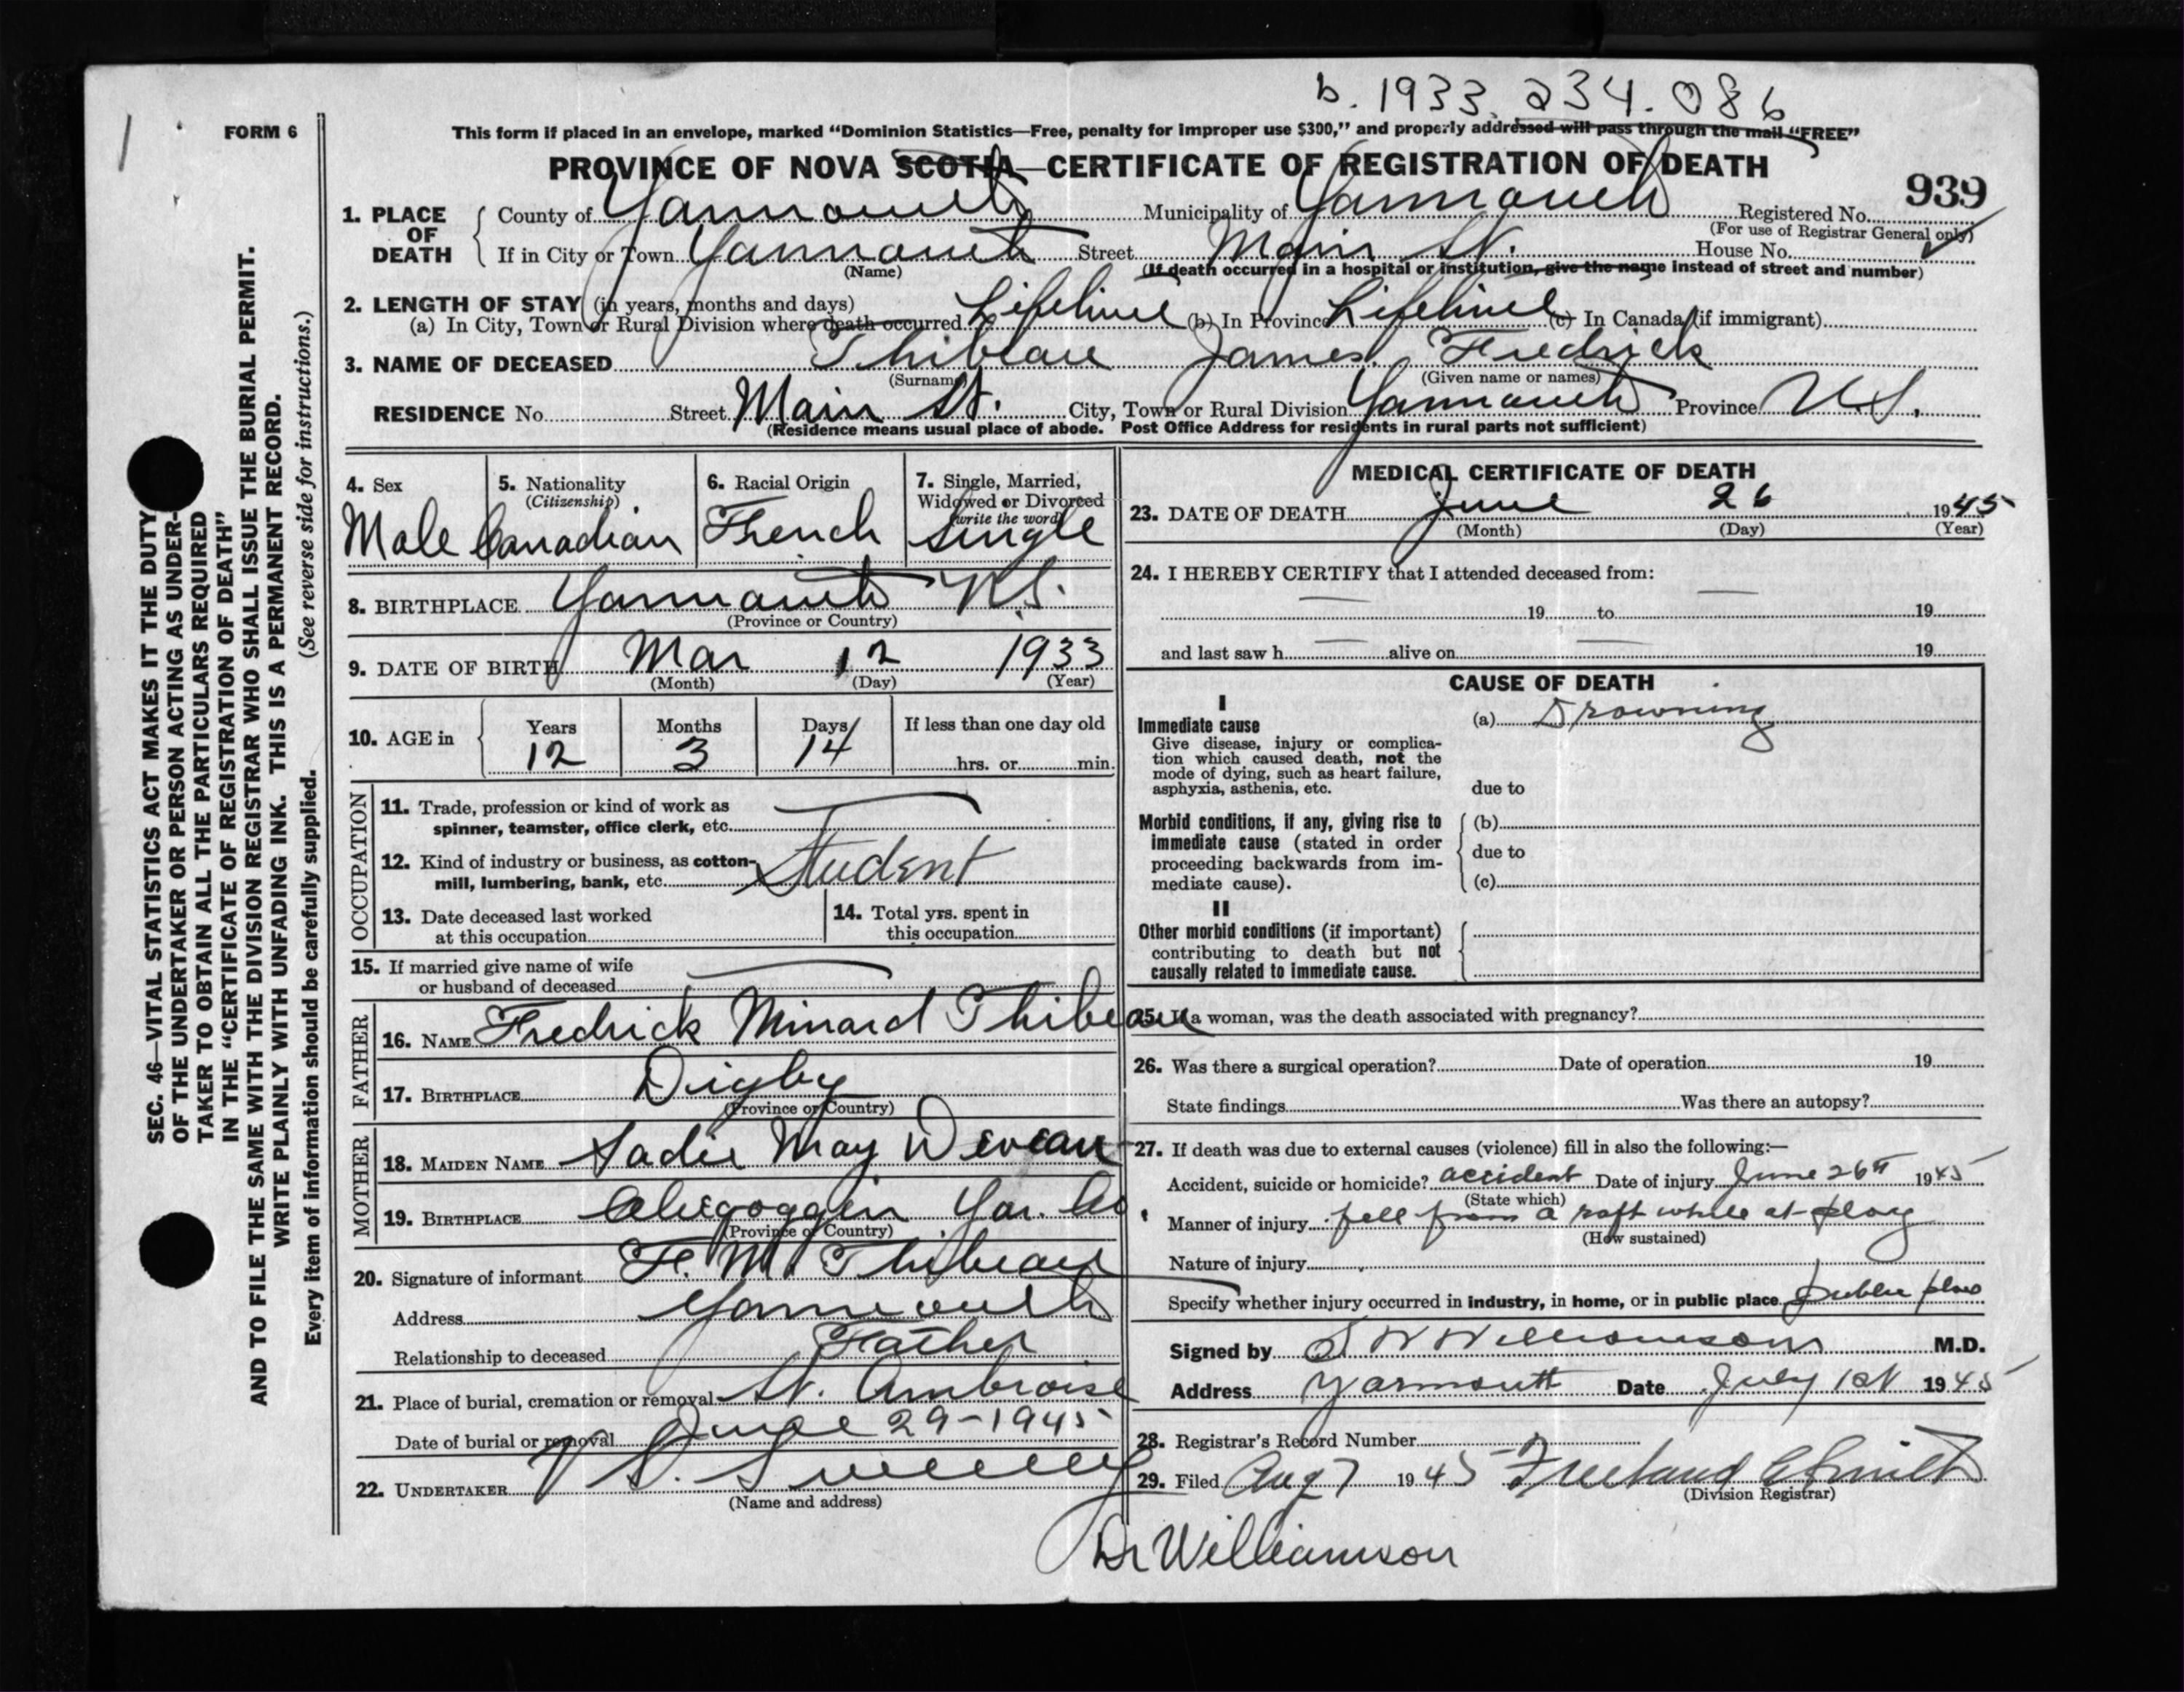 b. 1933. 234. 086
FORM 6
This form if placed in an envelope, marked “Dominion Statistics—Free, penalty for improper use $300,” and properly addressed will pass through the mail “FREE”
PROVINCE OF NOVA SCOTIA—CERTIFICATE OF REGISTRATION OF DEATH
939
1. PLACE OF DEATH County of Yarmouth Municipality of Yarmouth Registered No.
(For use of Registrar General only)
If in City or Town Yarmouth Street Main St. House No.
(Name) (If death occurred in a hospital or institution, give the name instead of street and number)
2. LENGTH OF STAY (in years, months and days)
(a) In City, Town or Rural Division where death occurred Lifetime (b) In Province Lifetime (c) In Canada (if immigrant)
3. NAME OF DECEASED Thibeau James Fredrick
(Surname) (Given name or names)
RESIDENCE No. Street Main St. City, Town or Rural Division Yarmouth Province N.S.
(Residence means usual place of abode. Post Office Address for residents in rural parts not sufficient)
4. Sex 5. Nationality (Citizenship) 6. Racial Origin 7. Single, Married, Widowed or Divorced (write the word)
Male Canadian French Single
8. BIRTHPLACE Yarmouth N.S.
(Province or Country)
9. DATE OF BIRTH Mar 12 1933
(Month) (Day) (Year)
10. AGE in Years Months Days If less than one day old
12 3 14 hrs. or min.
OCCUPATION
11. Trade, profession or kind of work as
spinner, teamster, office clerk, etc.
12. Kind of industry or business, as cotton-
mill, lumbering, bank, etc. Student
13. Date deceased last worked
at this occupation
14. Total yrs. spent in
this occupation
15. If married give name of wife
or husband of deceased
FATHER
16. NAME Fredrick Minard Thibeau
17. BIRTHPLACE Digby
(Province or Country)
MOTHER
18. MAIDEN NAME Sadie May Deveau
19. BIRTHPLACE Chegoggin Yar. Co.
(Province or Country)
20. Signature of informant F. M. Thibeau
Address Yarmouth
Relationship to deceased Father
21. Place of burial, cremation or removal St. Ambroise
Date of burial or removal June 29-1945
22. UNDERTAKER V. S. Sweeney
(Name and address)
MEDICAL CERTIFICATE OF DEATH
23. DATE OF DEATH June 26 1945
(Month) (Day) (Year)
24. I HEREBY CERTIFY that I attended deceased from:
19 to 19
and last saw h alive on 19
CAUSE OF DEATH
I
Immediate cause (a) Drowning
Give disease, injury or complica-
tion which caused death, not the
mode of dying, such as heart failure,
asphyxia, asthenia, etc. due to
Morbid conditions, if any, giving rise to (b)
immediate cause (stated in order due to
proceeding backwards from im-
mediate cause). (c)
II
Other morbid conditions (if important)
contributing to death but not
causally related to immediate cause.
25. If a woman, was the death associated with pregnancy?
26. Was there a surgical operation? Date of operation 19
State findings Was there an autopsy?
27. If death was due to external causes (violence) fill in also the following:—
Accident, suicide or homicide? accident Date of injury June 26th 1945
(State which)
Manner of injury fell from a raft while at play
(How sustained)
Nature of injury
Specify whether injury occurred in industry, in home, or in public place public place
Signed by S W Williamson M.D.
Address Yarmouth Date July 1st 1945
28. Registrar's Record Number
29. Filed Aug 7 1945 Freeland Smith
(Division Registrar)
Dr Williamson
SEC. 46—VITAL STATISTICS ACT MAKES IT THE DUTY
OF THE UNDERTAKER OR PERSON ACTING AS UNDER-
TAKER TO OBTAIN ALL THE PARTICULARS REQUIRED
IN THE “CERTIFICATE OF REGISTRATION OF DEATH”
AND TO FILE THE SAME WITH THE DIVISION REGISTRAR WHO SHALL ISSUE THE BURIAL PERMIT.
WRITE PLAINLY WITH UNFADING INK. THIS IS A PERMANENT RECORD.
Every item of information should be carefully supplied. (See reverse side for instructions.)